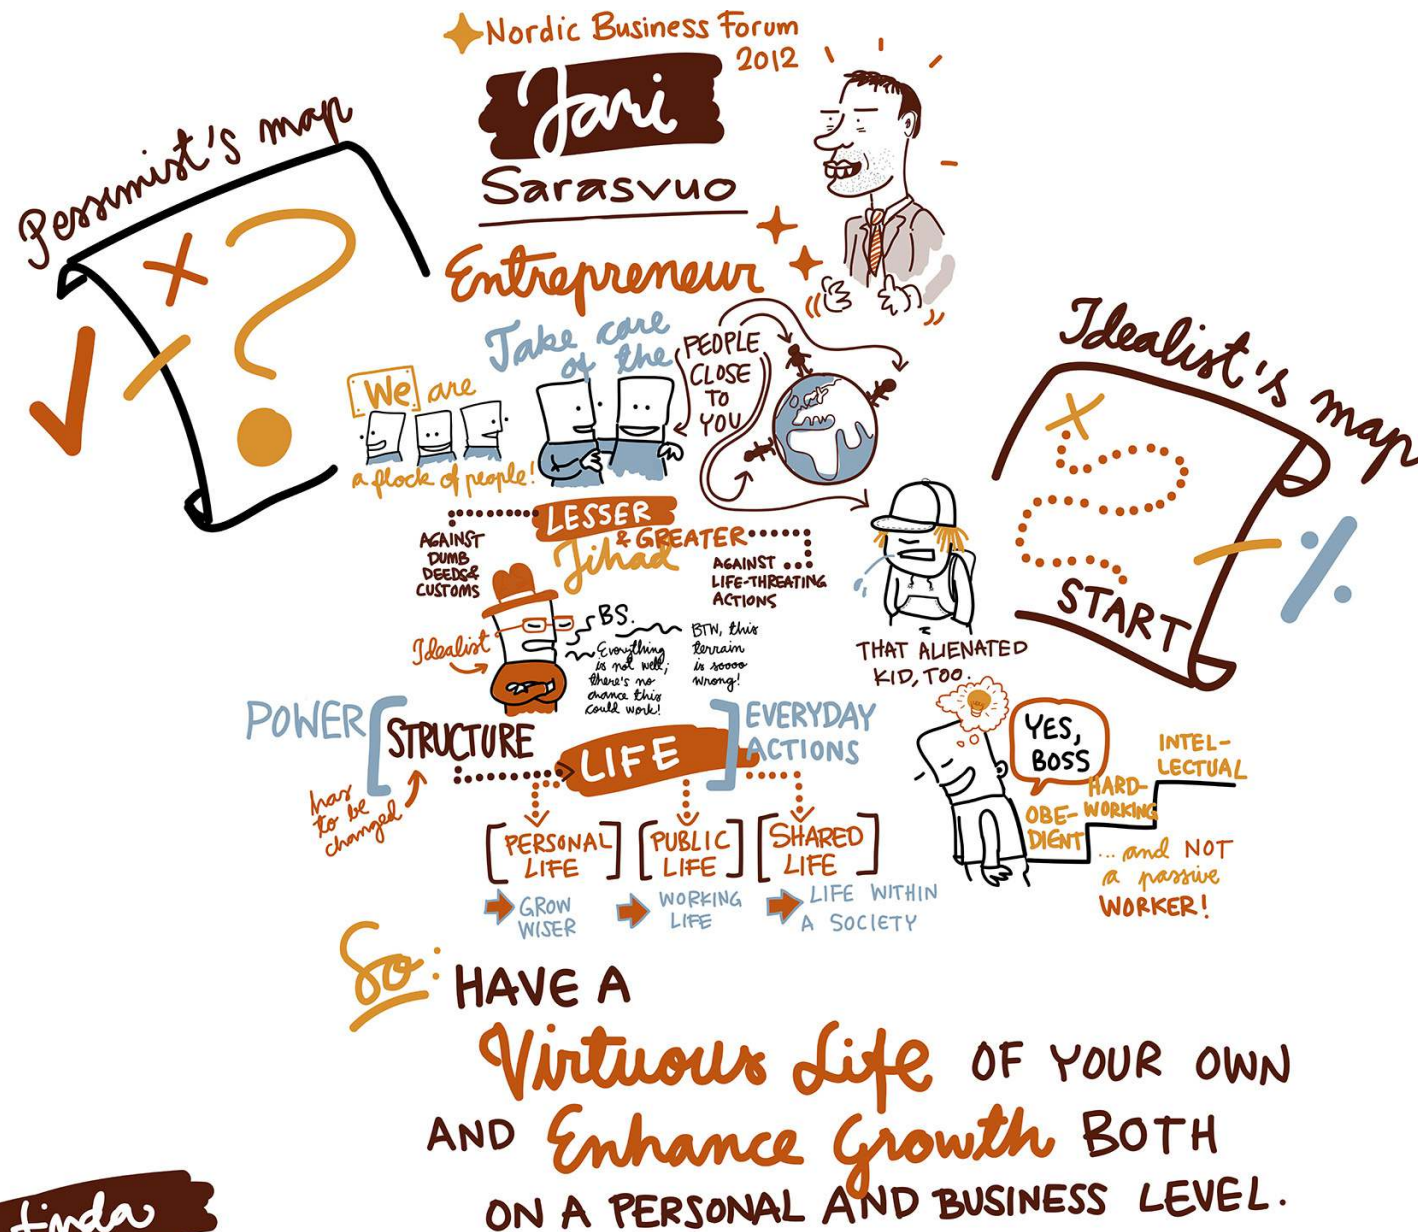 Nordic Business Forum
2012
Jari
Sarasvuo
Entrepreneur
Pessimist's map
Idealist's map
START
We are
a flock of people!
Take care
of the
PEOPLE
CLOSE
TO
YOU
THAT ALIENATED
KID, TOO.
LESSER
& GREATER
Jihad
AGAINST
DUMB
DEEDS &
CUSTOMS
AGAINST
LIFE-THREATING
ACTIONS
Idealist
BS.
Everything
is not well;
there's no
chance this
could work!
BTW, this
terrain
is soooo
wrong!
POWER
STRUCTURE
has
to be
changed
LIFE
EVERYDAY
ACTIONS
PERSONAL
LIFE
PUBLIC
LIFE
SHARED
LIFE
GROW
WISER
WORKING
LIFE
LIFE WITHIN
A SOCIETY
YES,
BOSS
OBE-
DIENT
HARD-
WORKING
INTEL-
LECTUAL
...and NOT
a passive
WORKER!
So:
HAVE A
Virtuous Life OF YOUR OWN
AND Enhance Growth BOTH
ON A PERSONAL AND BUSINESS LEVEL.
Linda